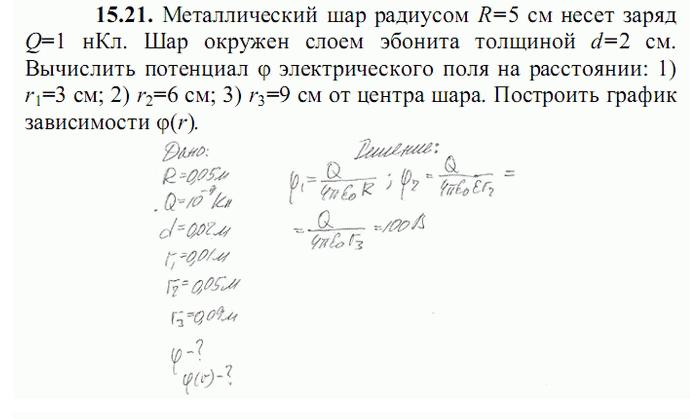 15.21. Металлический шар радиусом R=5 см несет заряд
Q=1 нКл. Шар окружен слоем эбонита толщиной d=2 см.
Вычислить потенциал φ электрического поля на расстоянии: 1)
r₁=3 см; 2) r₂=6 см; 3) r₃=9 см от центра шара. Построить график
зависимости φ(r).
Дано:
R=0,05м
Q=10⁻⁹Кл
d=0,02м
r₁=0,01м
r₂=0,05м
r₃=0,09м
φ-?
φ(r)-?
Решение:
φ₁=Q/4πε₀R; φ₂=Q/4πε₀εr₂=
=Q/4πε₀r₃=100В